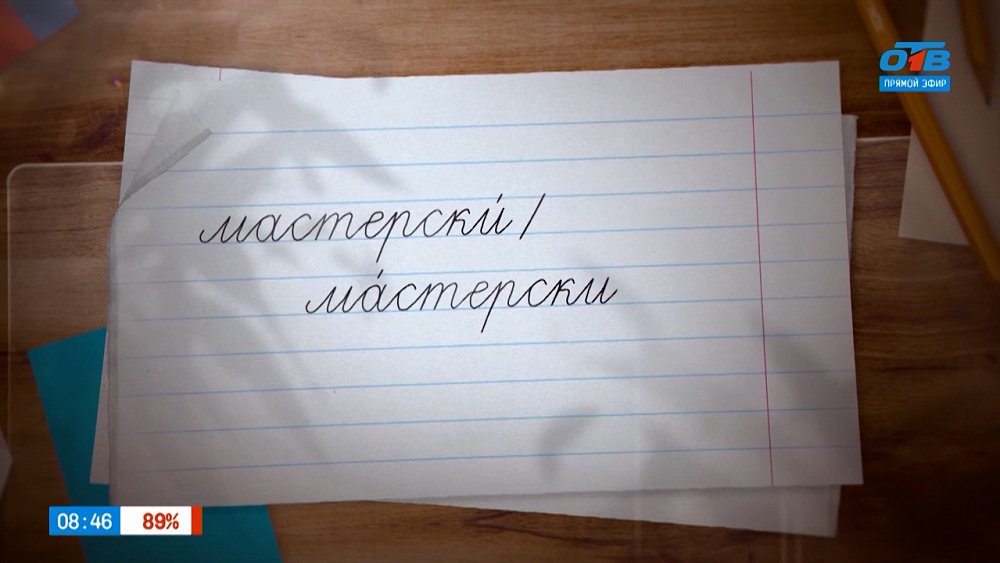 ОТВ
ПРЯМОЙ ЭФИР
мастерски́/
ма́стерски
08:46 89%